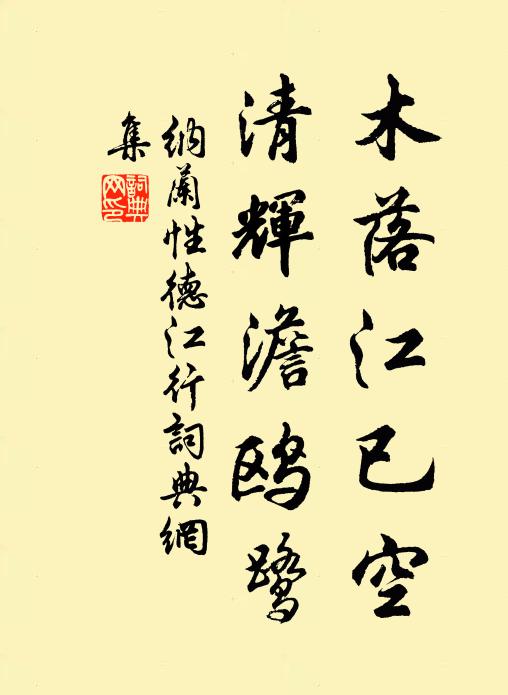 木落江已空
清輝澹鷗鷺
納蘭性德江行詞典網
集
詞典
网印